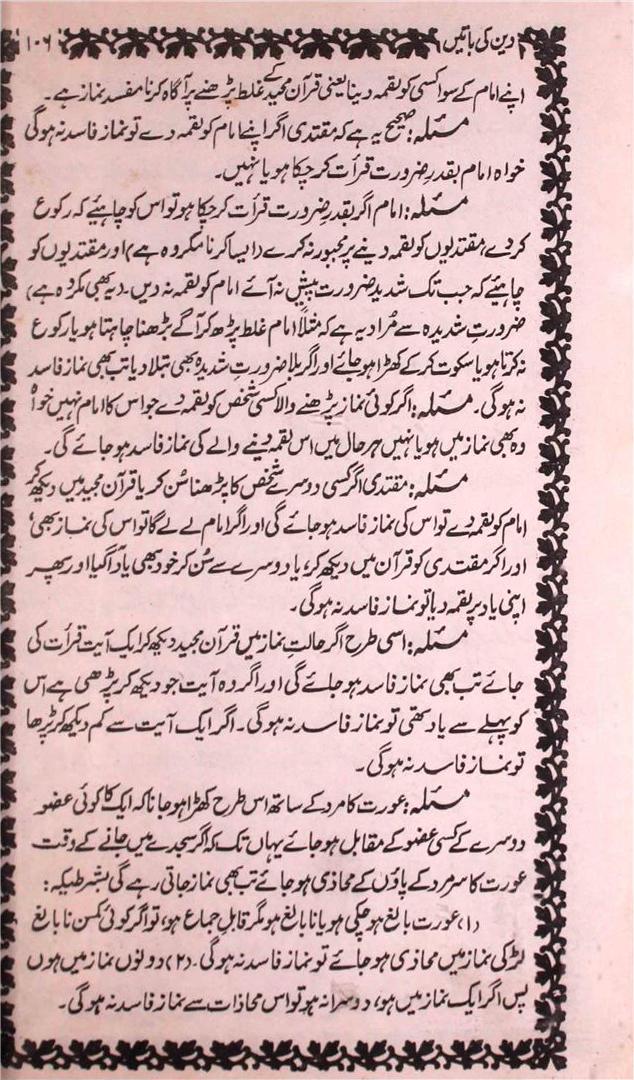 دین کی باتیں ۱۰۶
اپنے امام کے سوا کسی کو لقمہ دینا یعنی قرآن مجید کے غلط پڑھنے پر آگاہ کرنا مفسد نماز ہے۔
مسئلہ: صحیح یہ ہے کہ مقتدی اگر اپنے امام کو لقمہ دے تو نماز فاسد نہ ہوگی
خواہ امام بقدرِ ضرورت قرأت کر چکا ہو یا نہیں۔
مسئلہ: امام اگر بقدرِ ضرورت قرأت کر چکا ہو تو اس کو چاہئیے کہ رکوع
کردے، مقتدیوں کو لقمہ دینے پر مجبور نہ کرے (ایسا کرنا مکروہ ہے) اور مقتدیوں کو
چاہئیے کہ جب تک شدید ضرورت پیش نہ آئے امام کو لقمہ نہ دیں۔ (یہ بھی مکروہ ہے)
ضرورتِ شدیدہ سے مُراد یہ ہے کہ مثلاً امام غلط پڑھ کر آگے بڑھنا چاہتا ہو یا رکوع
نہ کرتا ہو یا سکوت کر کے کھڑا ہو جائے اور اگر بلا ضرورتِ شدیدہ بھی بتلا دیا تب بھی نماز فاسد
نہ ہوگی۔ مسئلہ: اگر کوئی نماز پڑھنے والا کسی شخص کو لقمہ دے جو اس کا امام نہیں خواہ
وہ بھی نماز میں ہو یا نہیں ہر حال میں اس لقمہ دینے والے کی نماز فاسد ہو جائے گی۔
مسئلہ: مقتدی اگر کسی دوسرے شخص کا پڑھنا سُن کر یا قرآن مجید میں دیکھ کر
امام کو لقمہ دے تو اس کی نماز فاسد ہو جائے گی اور اگر امام لے لے گا تو اس کی نماز بھی،
اور اگر مقتدی کو قرآن میں دیکھ کر، یا دوسرے سے سُن کر خود بھی یاد آگیا اور پھر
اپنی یاد پر لقمہ دیا تو نماز فاسد نہ ہوگی۔
مسئلہ: اسی طرح اگر حالتِ نماز میں قرآن مجید دیکھ کر ایک آیت قرأت کی
جائے تب بھی نماز فاسد ہو جائے گی اور اگر وہ آیت جو دیکھ کر پڑھی ہے اس
کو پہلے سے یاد تھی تو نماز فاسد نہ ہوگی۔ اگر ایک آیت سے کم دیکھ کر پڑھا
تو نماز فاسد نہ ہوگی۔
مسئلہ: عورت کا مرد کے ساتھ اس طرح کھڑا ہو جانا کہ ایک کا کوئی عضو
دوسرے کے کسی عضو کے مقابل ہو جائے یہاں تک کہ اگر سجدے میں جانے کے وقت
عورت کا سر مرد کے پاؤں کے محاذی ہو جائے تب بھی نماز جاتی رہے گی بشرطیکہ:
(۱) عورت بالغ ہو چکی ہو یا نابالغ ہو مگر قابلِ جماع ہو، تو اگر کوئی کمسن نابالغ
لڑکی نماز میں محاذی ہو جائے تو نماز فاسد نہ ہوگی۔ (۲) دونوں نماز میں ہوں
پس اگر ایک نماز میں ہو، دوسرا نہ ہو تو اس محاذات سے نماز فاسد نہ ہوگی۔